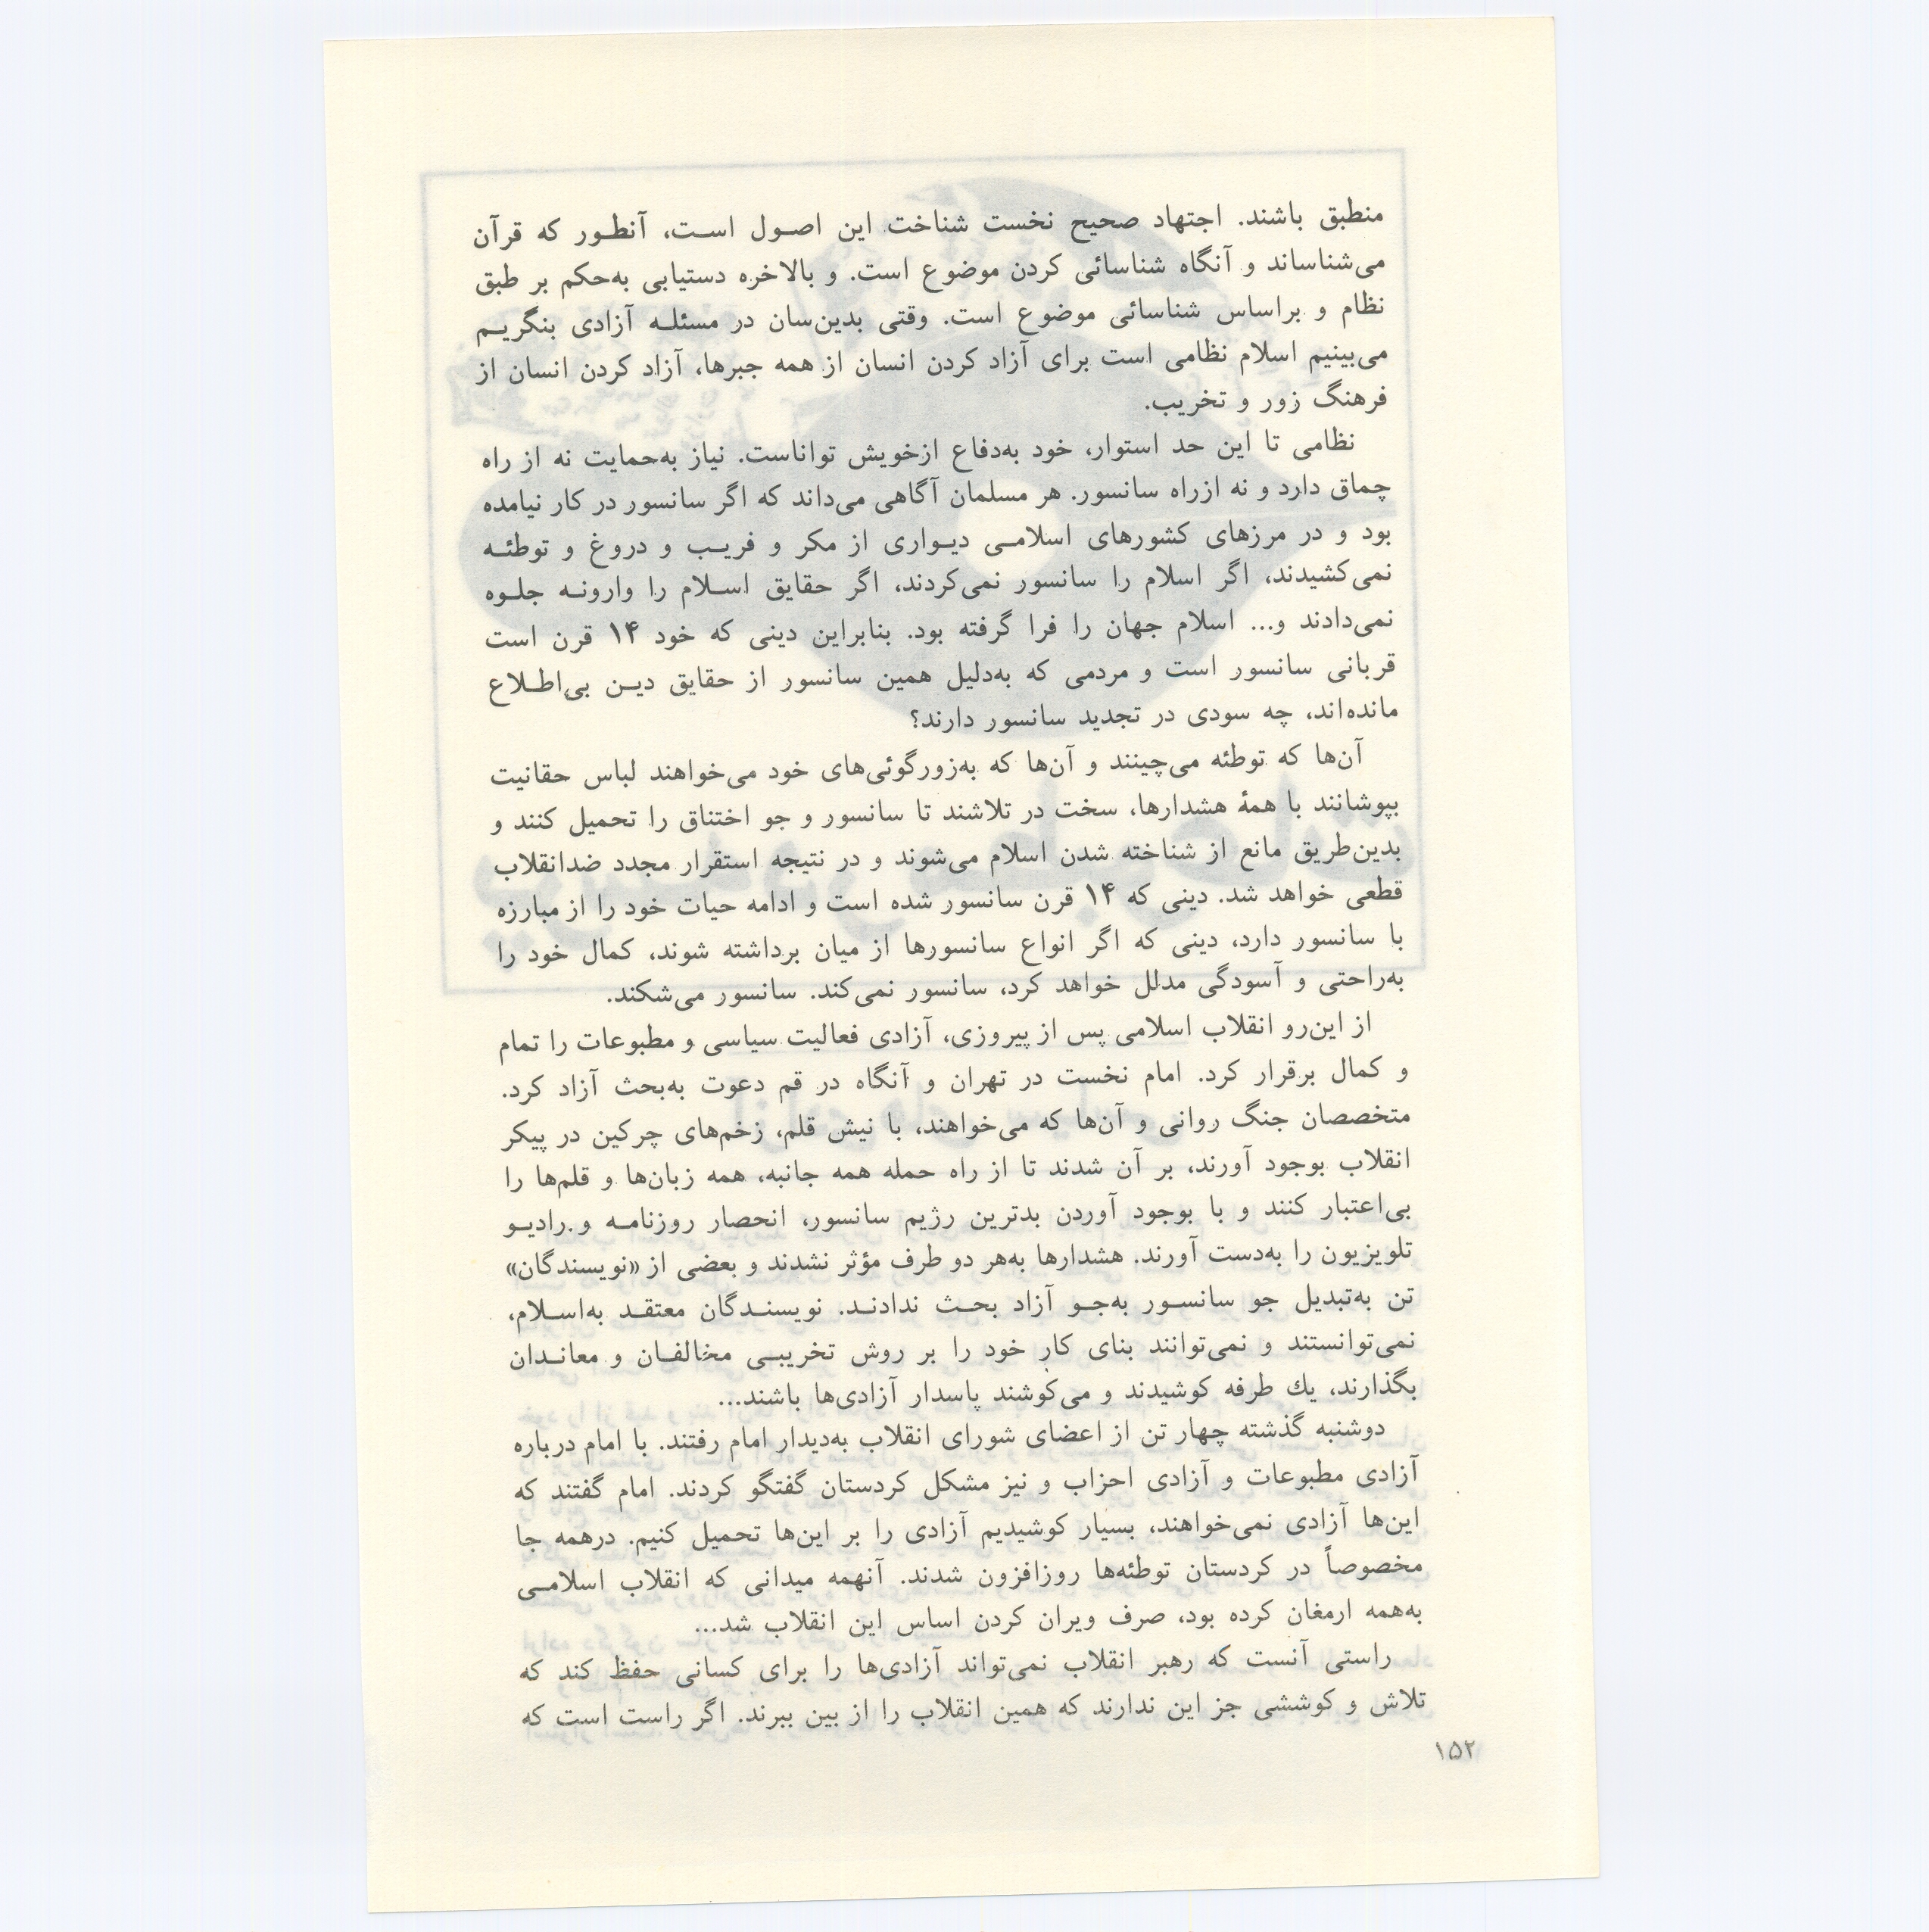 منطبق باشند. اجتهاد صحیح نخست شناخت این اصول است، آنطور که قرآن
می‌شناساند و آنگاه شناسائی کردن موضوع است. و بالاخره دستیابی به‌حکم بر طبق
نظام و براساس شناسائی موضوع است. وقتی بدین‌سان در مسئله آزادی بنگریم
می‌بینیم اسلام نظامی است برای آزاد کردن انسان از همه جبرها، آزاد کردن انسان از
فرهنگ زور و تخریب.
نظامی تا این حد استوار، خود به‌دفاع ازخویش تواناست. نیاز به‌حمایت نه از راه
چماق دارد و نه ازراه سانسور. هر مسلمان آگاهی می‌داند که اگر سانسور در کار نیامده
بود و در مرزهای کشورهای اسلامی دیواری از مکر و فریب و دروغ و توطئه
نمی‌کشیدند، اگر اسلام را سانسور نمی‌کردند، اگر حقایق اسلام را وارونه جلوه
نمی‌دادند و... اسلام جهان را فرا گرفته بود. بنابراین دینی که خود ۱۴ قرن است
قربانی سانسور است و مردمی که به‌دلیل همین سانسور از حقایق دین بی‌اطلاع
مانده‌اند، چه سودی در تجدید سانسور دارند؟
آن‌ها که توطئه می‌چینند و آن‌ها که به‌زورگوئی‌های خود می‌خواهند لباس حقانیت
بپوشانند با همهٔ هشدارها، سخت در تلاشند تا سانسور و جو اختناق را تحمیل کنند و
بدین‌طریق مانع از شناخته شدن اسلام می‌شوند و در نتیجه استقرار مجدد ضدانقلاب
قطعی خواهد شد. دینی که ۱۴ قرن سانسور شده است و ادامه حیات خود را از مبارزه
با سانسور دارد، دینی که اگر انواع سانسورها از میان برداشته شوند، کمال خود را
به‌راحتی و آسودگی مدلل خواهد کرد، سانسور نمی‌کند. سانسور می‌شکند.
از این‌رو انقلاب اسلامی پس از پیروزی، آزادی فعالیت سیاسی و مطبوعات را تمام
و کمال برقرار کرد. امام نخست در تهران و آنگاه در قم دعوت به‌بحث آزاد کرد.
متخصصان جنگ روانی و آن‌ها که می‌خواهند، با نیش قلم، زخم‌های چرکین در پیکر
انقلاب بوجود آورند، بر آن شدند تا از راه حمله همه جانبه، همه زبان‌ها و قلم‌ها را
بی‌اعتبار کنند و با بوجود آوردن بدترین رژیم سانسور، انحصار روزنامه و رادیو
تلویزیون را به‌دست آورند. هشدارها به‌هر دو طرف مؤثر نشدند و بعضی از «نویسندگان»
تن به‌تبدیل جو سانسور به‌جو آزاد بحث ندادند. نویسندگان معتقد به‌اسلام،
نمی‌توانستند و نمی‌توانند بنای کار خود را بر روش تخریبی مخالفان و معاندان
بگذارند، یك طرفه کوشیدند و می‌کوشند پاسدار آزادی‌ها باشند...
دوشنبه گذشته چهار تن از اعضای شورای انقلاب به‌دیدار امام رفتند. با امام درباره
آزادی مطبوعات و آزادی احزاب و نیز مشکل کردستان گفتگو کردند. امام گفتند که
این‌ها آزادی نمی‌خواهند، بسیار کوشیدیم آزادی را بر این‌ها تحمیل کنیم. درهمه جا
مخصوصاً در کردستان توطئه‌ها روزافزون شدند. آنهمه میدانی که انقلاب اسلامی
به‌همه ارمغان کرده بود، صرف ویران کردن اساس این انقلاب شد...
راستی آنست که رهبر انقلاب نمی‌تواند آزادی‌ها را برای کسانی حفظ کند که
تلاش و کوششی جز این ندارند که همین انقلاب را از بین ببرند. اگر راست است که
۱۵۲